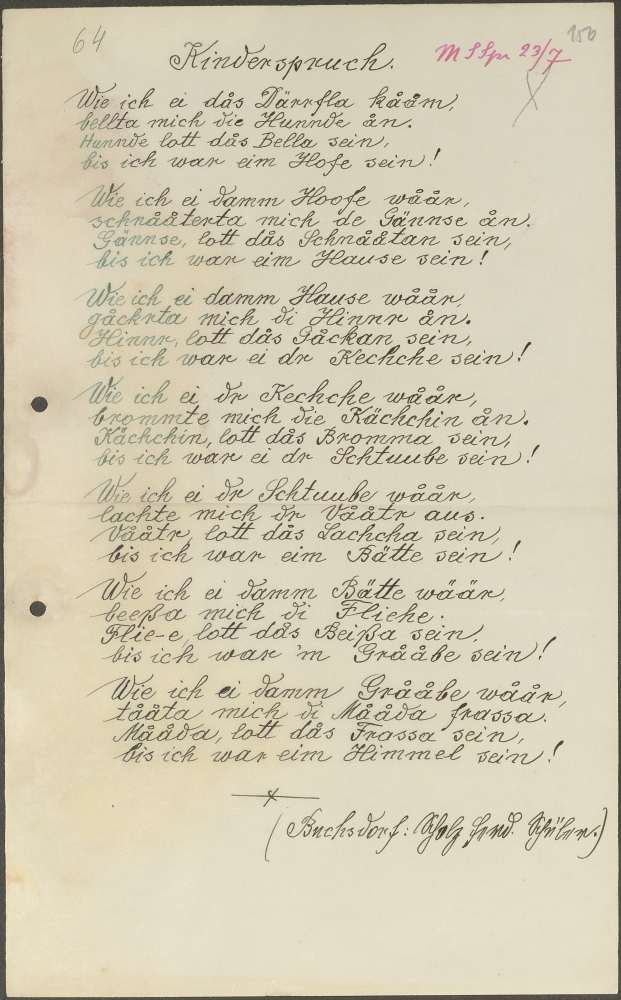 64
156
Kinderspruch.
M S Spr 23/7
Wie ich ei dås Därrfla kååm,
bellta mich die Hunnde ån.
Hunnde lott dås Bella sein,
bis ich war eim Hofe sein!
Wie ich ei damm Hoofe wåår,
schnååterta mich de Gännse ån.
Gännse, lott dås Schnååtan sein,
bis ich war eim Hause sein!
Wie ich ei damm Hause wåår,
gåckrta mich di Hinnr ån.
Hinnr, lott dås Gåckan sein,
bis ich war ei dr Kechche sein!
Wie ich ei dr Kechche wåår,
brommte mich die Kächchin ån.
Kächchin, lott dås Bromma sein,
bis ich war ei dr Schtuube sein!
Wie ich ei dr Schtuube wåår,
lachte mich dr Vååtr aus.
Vååtr, lott dås Lachcha sein,
bis ich war eim Bätte sein!
Wie ich ei damm Bätte wåår,
beeßa mich di Fliehe.
Flie-e, lott dås Beißa sein,
bis ich war 'm Grååbe sein!
Wie ich ei damm Grååbe wåår,
tååta mich di Mååda frassa.
Mååda, lott dås Frassa sein,
bis ich war eim Himmel sein!
(Buchsdorf: Scholz Ferd. Schüler.)